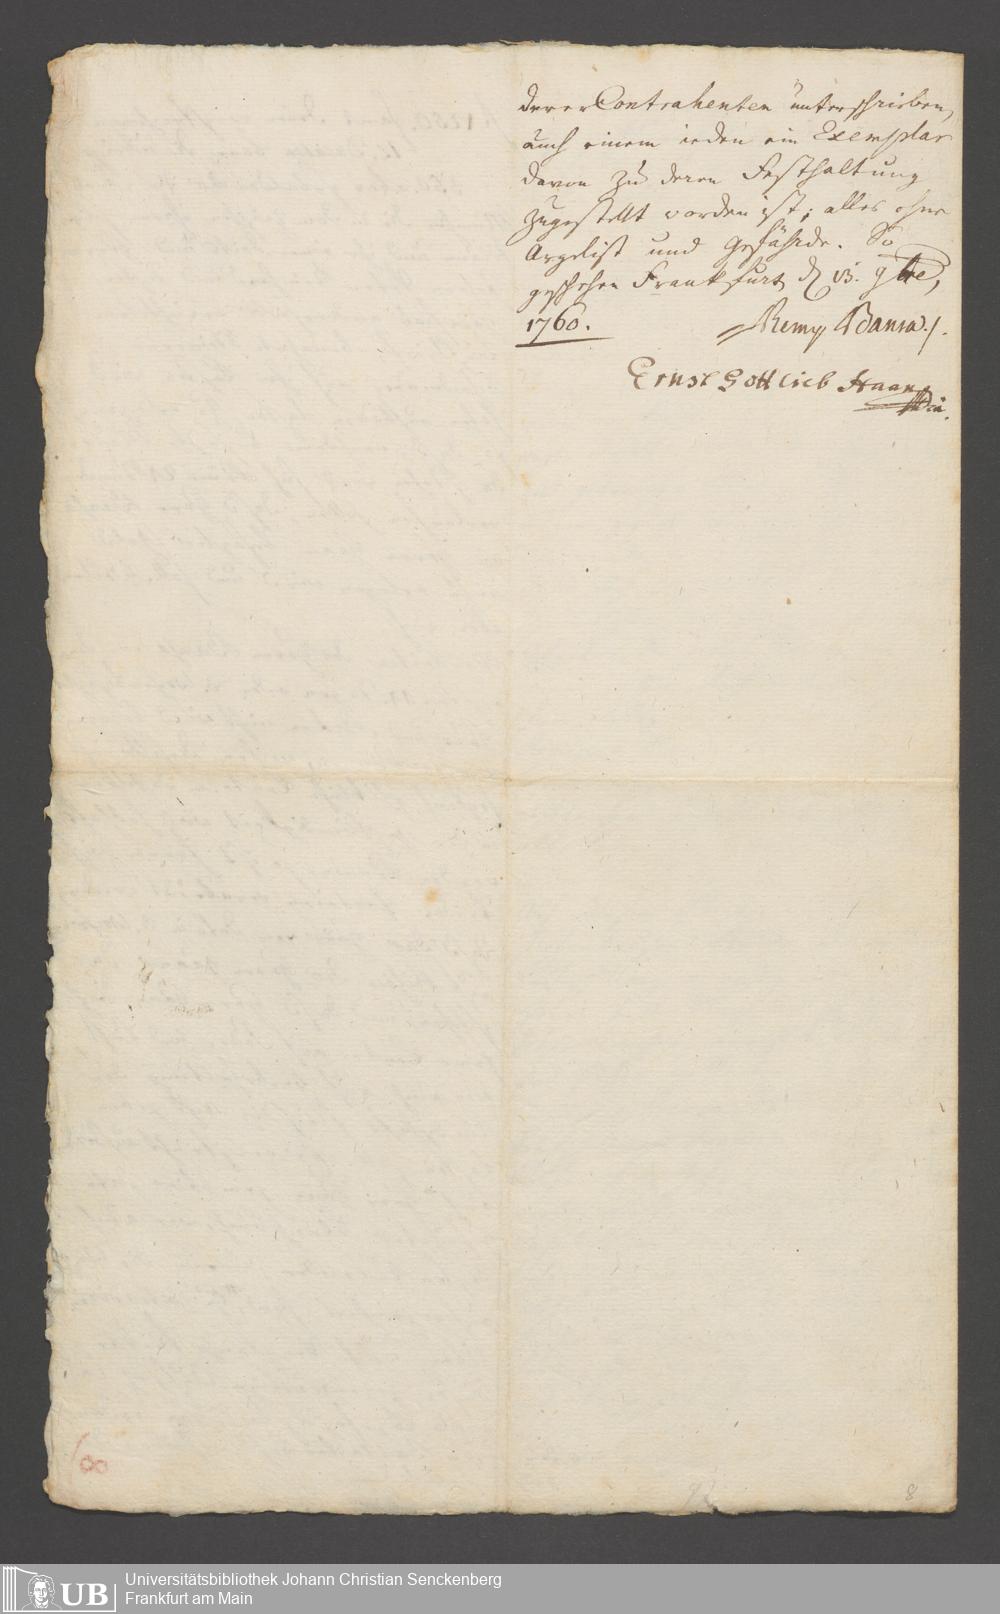 derer Contrahenten unterschrieben,
auch einem ieden ein Exemplar
davon zu deren Festhaltung
zugestellt worden ist; alles ohne
Argelist und Gefährde. So
geschehen Frankfurt d 13. 9bre,
1760.
Remy Bansa
Ernst Gottlieb Haan
8
UB
Universitätsbibliothek Johann Christian Senckenberg
Frankfurt am Main